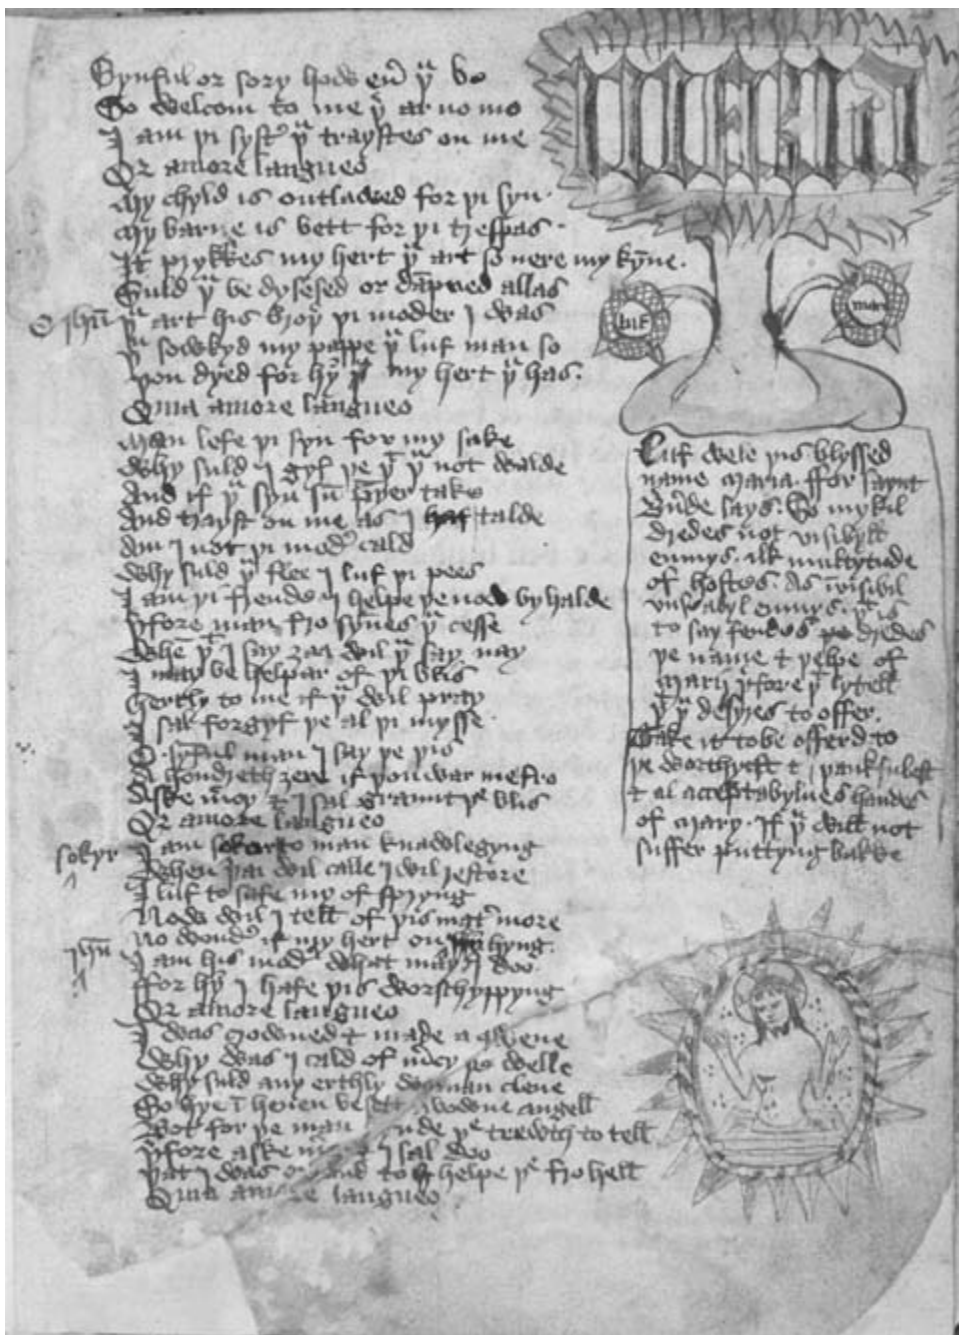 Synful or sory how eu̅ þᵘ be
So welcom to me þʳ ar no mo
I am þi systʳ þᵘ traystes on me
Qr amore langueo
My chyld is outlawed for þi syn
My barne is bett for þi trespas
It prykkes my hert þᵗ art so nere my kyne.
Suld þᵘ be dysesed or dāpned allas
O ihū þᵘ art his broþʳ þi moder I was
þᵘ sowkyd my pappe þᵘ luf man so
þou dyed for hy̅ my hert þᵘ has.
Quia amore langueo
Man lefe þi syn for my sake
Why suld I gyf þe þᵗ þᵘ not walde
And if þᵘ syn
And trayst on me as I haf talde
Am I not þi modʳ cald
Why suld þᵘ flee I luf þi pees
I am þi frende I helpe þe now byhalde
þʳfore man fro synes þᵘ cesse
When þᵗ I say zaa wil þᵘ say nay
I may be helpar of þi blis
hertly to me if þᵘ wil pray
I sal forgyf þe al þi mysse
O synful man I say þe þis
A hondreth zere if þou war me fro
Aske mcy & I sal graunt þᵉ blis
Qr amore langueo
sokyr
I am to man knawlegyng
When þai wil calle I wil restore
I luf to safe my of spryng
Now wil I tell of þis matʳ more
No wondʳ if my hert on hyng.
ihū
I am his modʳ what may I doo.
ffor hy̅ I hafe þis worschyppyng
Qr amore langueo
I was crowned & made a qwene
Why was I cald of mcy þe welle
Why suld any erthly woman clene
So hye ī heuen be sett abowue angell
Bot for þe man þᵉ trewth to tell
þʳfore aske & I sal doo
þat I was to helpe þᵉ fro hell
Quia amore langueo
IHESU
luf
maria
Luf wele þis blyssed
name Maria. ffor saynt
says. So mykil
dredes not visibyll
enmys. ilk multytude
of hostes. As īvisibil
enmys. þᵗ is
to say fendes þe dredes
þe name & helpe of
Mary þʳfore þᵗ lytell
þᵗ þᵘ desyres to offer.
Take it to be offerd to
þe worthyest & þankfulest
& al acceptabylnes handes
of Mary. If þᵘ will not
suffer puttyng bakke